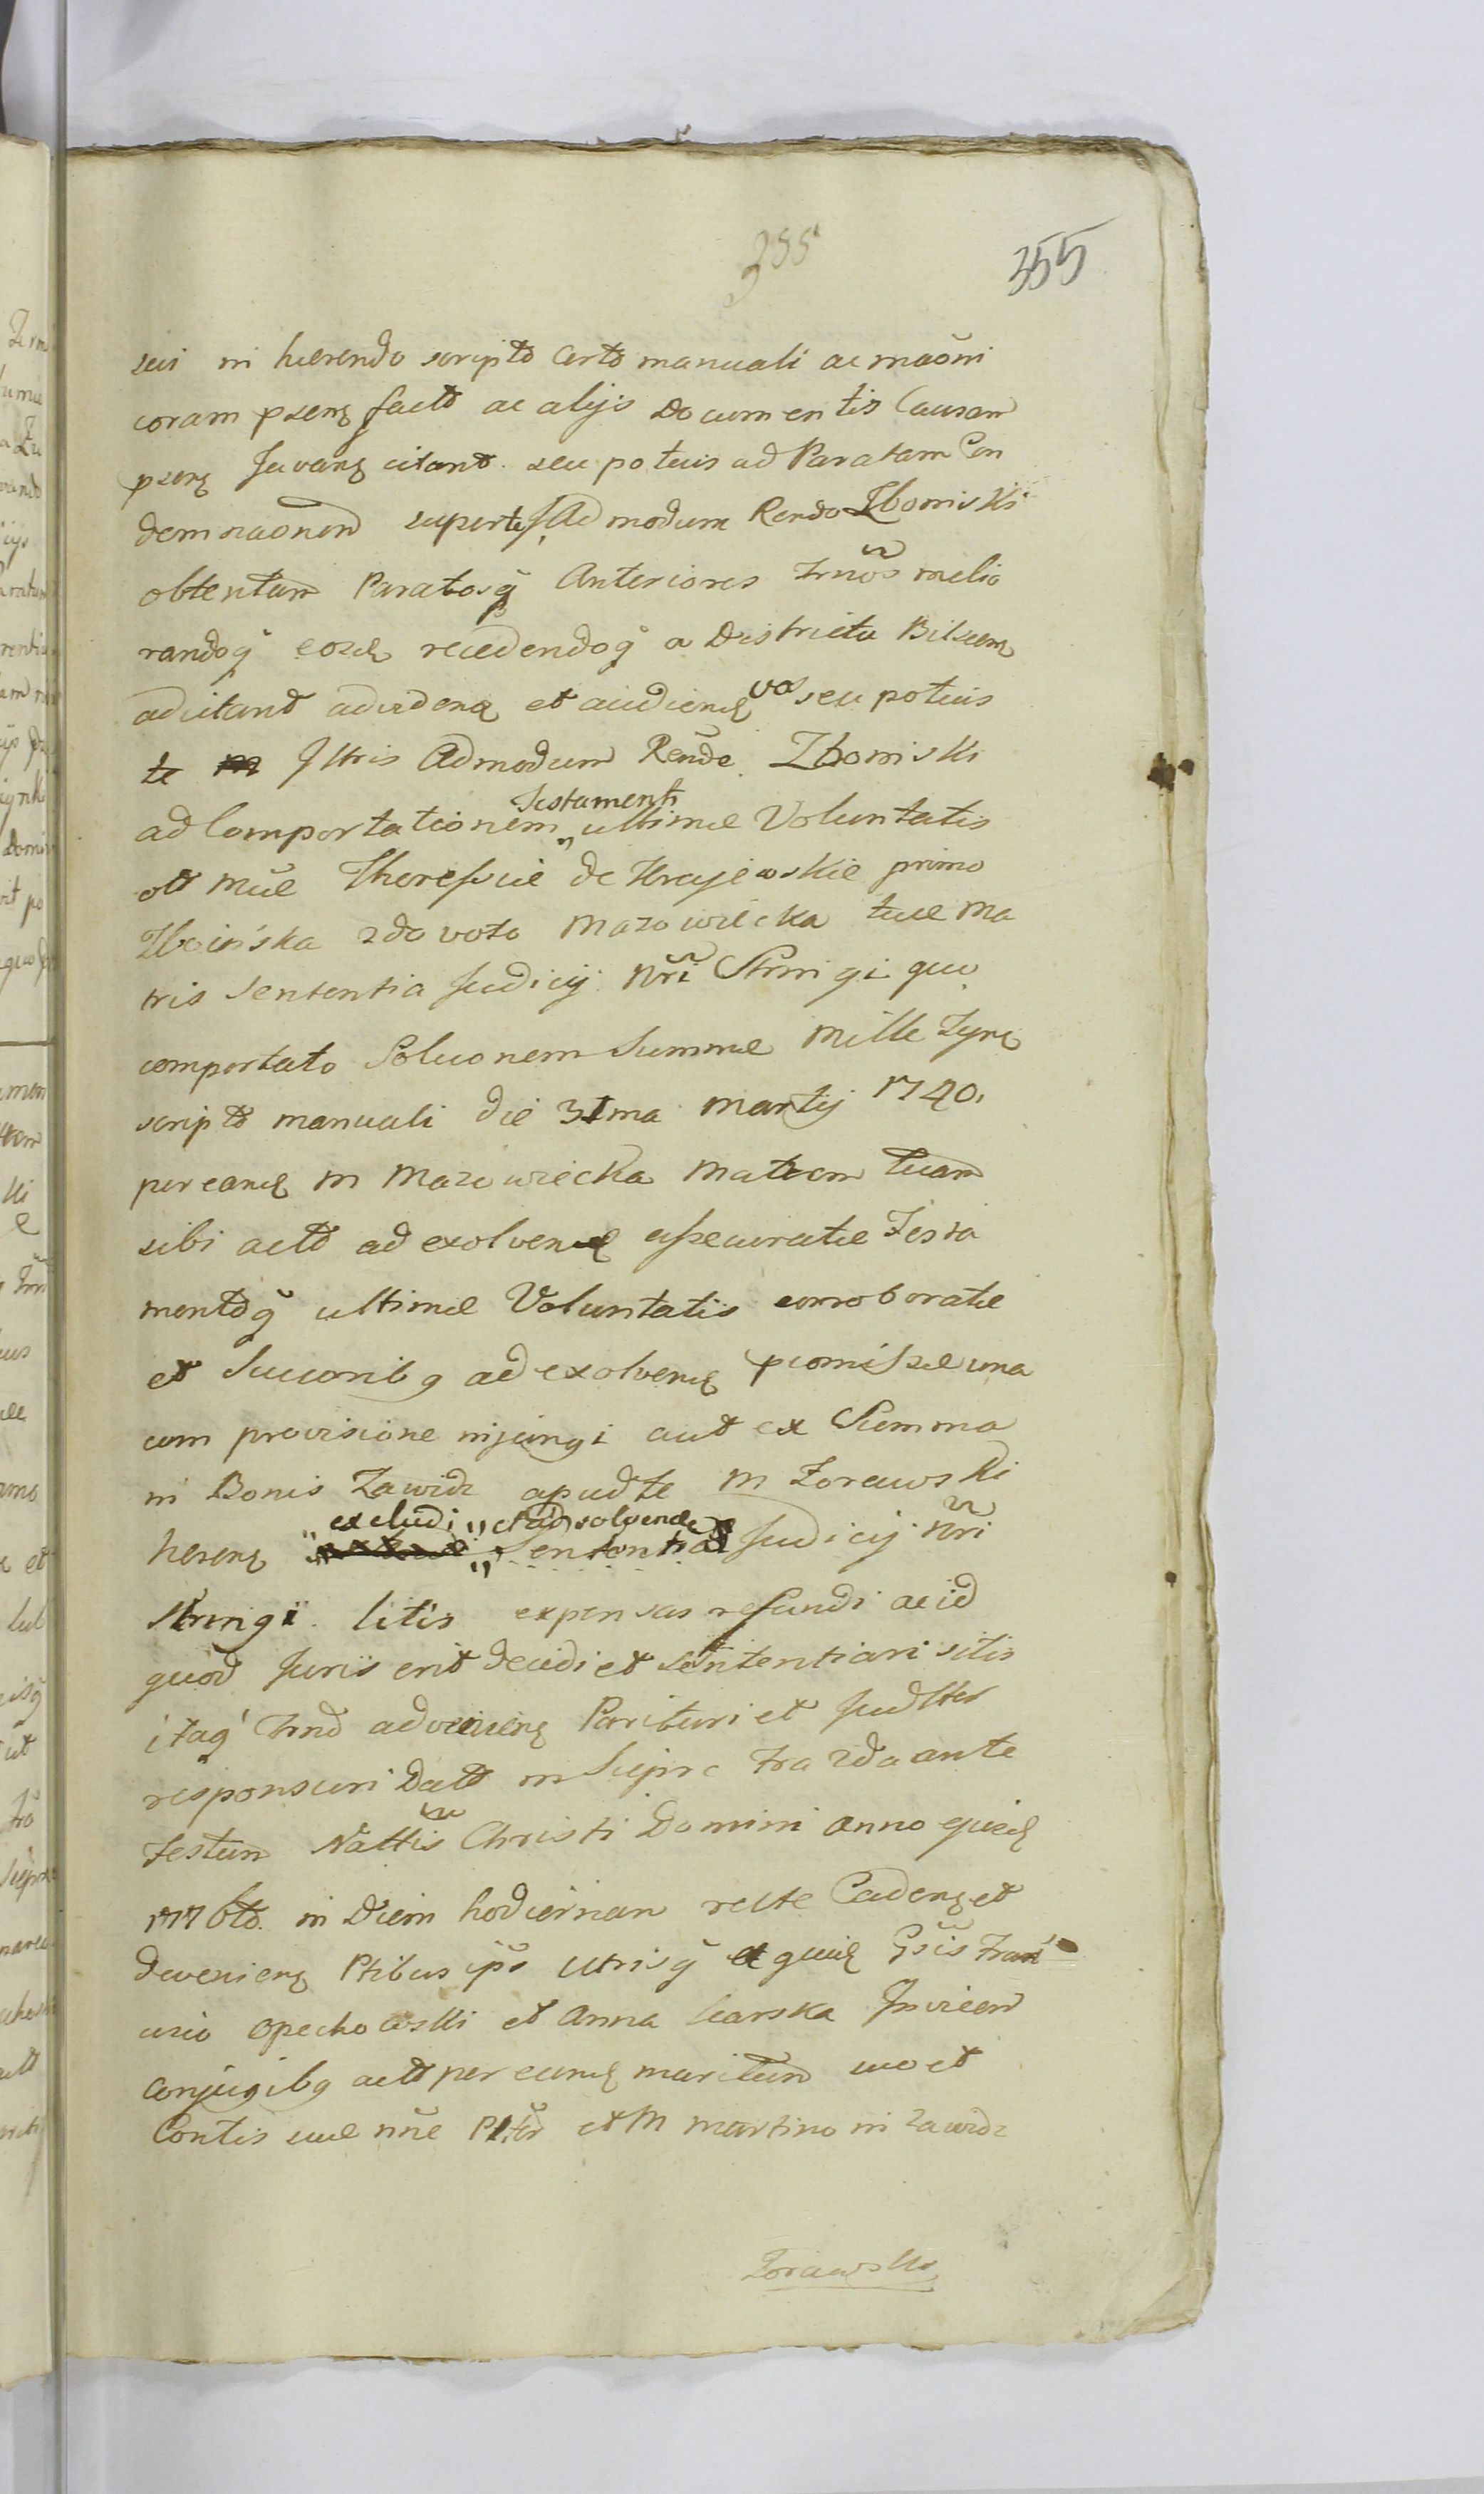 355
355
sui in hærendo scripto certo manuali ac maōni
coram psenꝫ facto ac alijs Documentis Causam
psenꝫ Juvanꝫ citant. seu potius ad Paratam Con
demnaonem super te Admodum Rendo Zboinski
obtentam Paratosq̃ Anteriores Trnōs melio
randoq̃ eosdꝫ recedendoq̃ a Districtu Bilscenꝫ
adcitant ad videnꝫ et audienꝫ vos seu potius
te Iltris Admodum Rende Zboinski
ad Comportationem „ Testamenti ultimæ Voluntatis
olt Mæ Theressiæ de Krajewskie primo
Zboińska 2do voto Mazowiecka tuæ Ma
tris Sententia Judicij Nri Stringi quo
comportato Soluonem Summæ Mille Tynꝫ
scripto manuali die 31ma Martij 1740.
per eandꝫ M Mazowiecka Matrem tuam
sibi acto ad exolvendꝫ assecuratæ Testa
mentoq̃ ultimæ Voluntatis corroboratæ
et Succorib9 ad exolvenꝫ promissæ una
cum provisione injungi aut ex Summa
in Bonis Zawidz apud te M Zorawski
herenꝫ „ excludi „ et ad solvendꝫ Sententia Judicij Nri
Stringi litis expensas refundi ac id
quod Juris erit decidi et Sententiari sitis
itaq̃ Trno advenienꝫ Parituri et Judltes
responsuri Datt in Sieprc fra 2da ante
Festum Nattis Christi Domini Anno ejusdꝫ
1776to in Diem hodiernam recte Cadenꝫ et
devenienꝫ Ptibus ips utrisq̃ et quidꝫ Gsis Fran
cisco Opechowski et Anna Carska Invicem
Conjugib9 actt per eundꝫ maritum suo et
Contis suæ nne Plter et M Martino in Zawidz
Zorawski